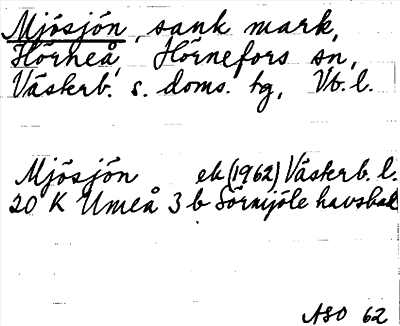 Mjösjön, sank mark,
Hörneå, Hörnefors sn,
Västerb. s. doms. tg, Vb. l.
Mjösjön ek (1962) Västerb. l.
20 K Umeå 3 b Sörmjöle havsbad
ASO 62